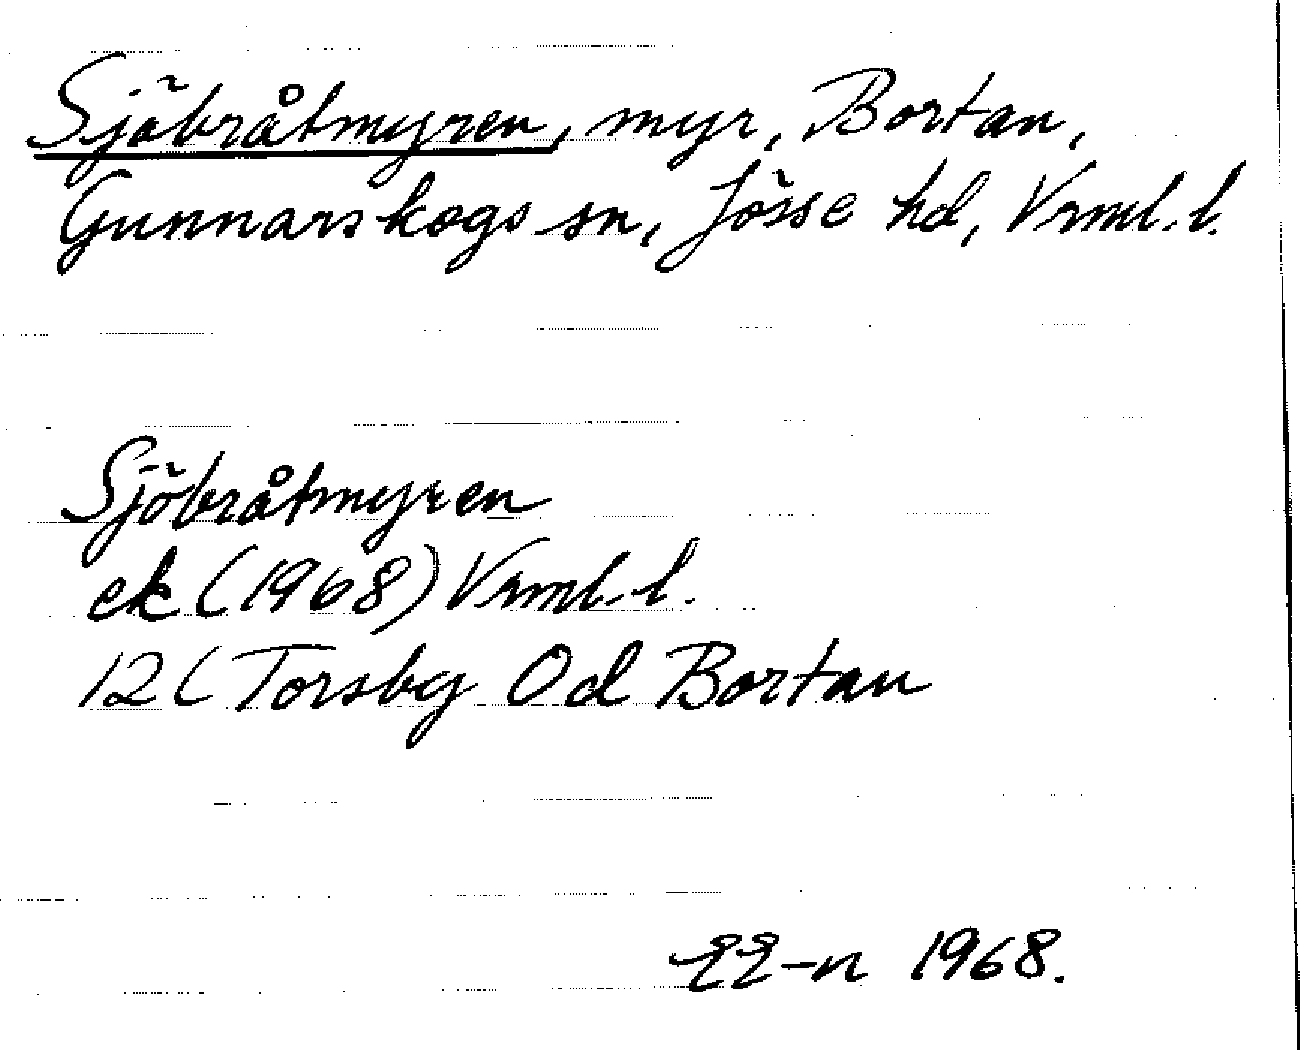 Sjöbråtmyren, myr, Bortan,
Gunnarskogs sn, Jösse hd, Vrml. l.
Sjöbråtmyren
ek (1968) Vrml. l.
12C Torsby Od Bortan
EE-n 1968.